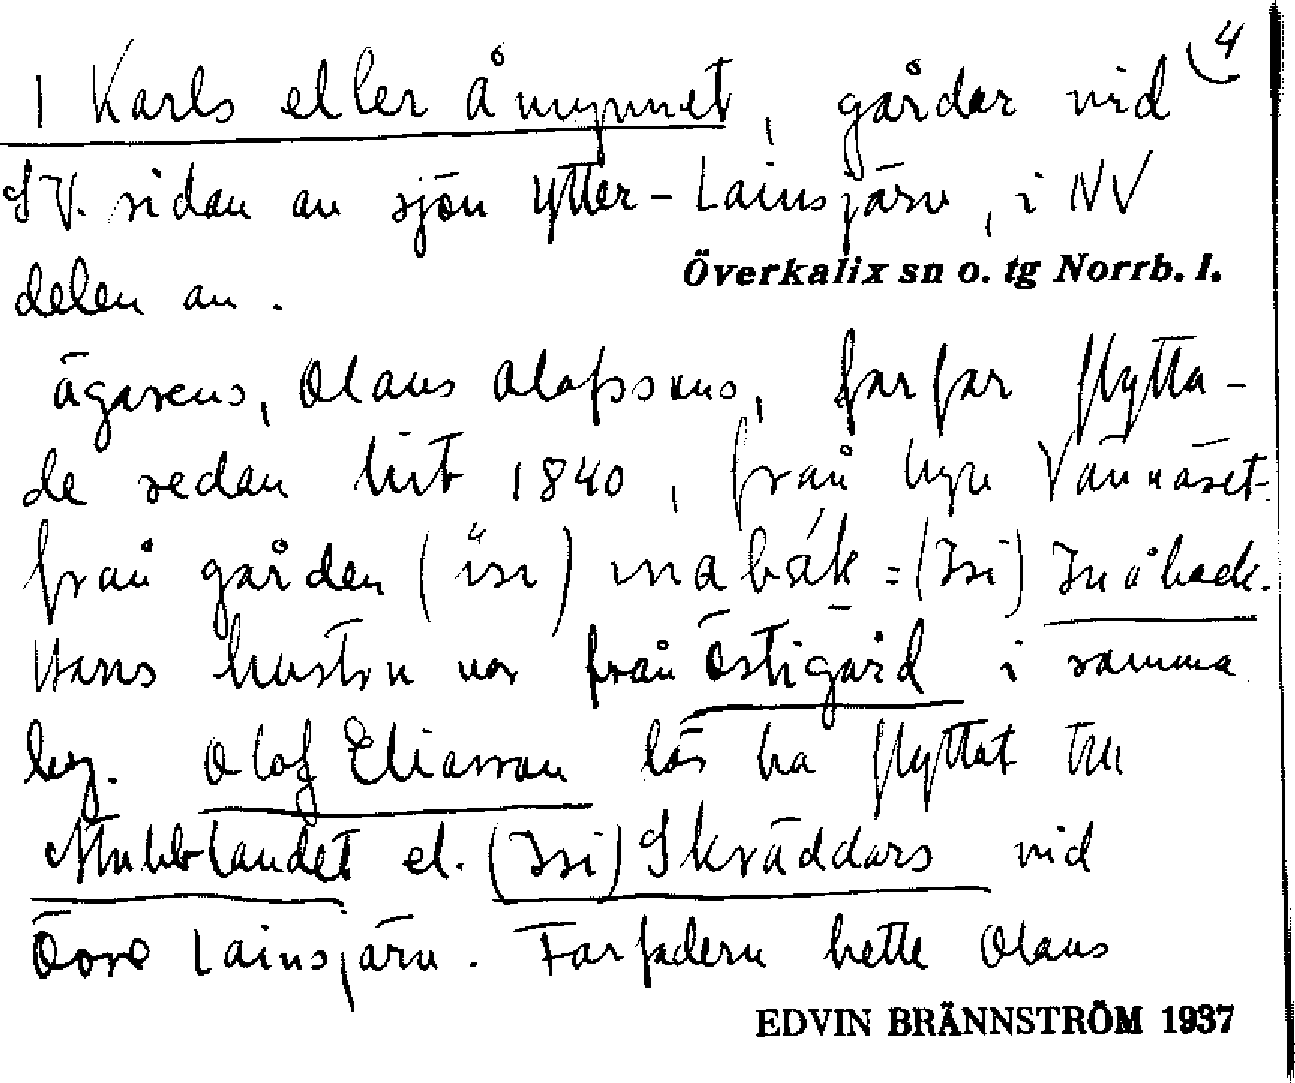 4
1 Karls eller Åmynnet, gårdar vid
SV. sidan av sjön Ytter-Lainsjärv, i NV
Överkalix sn o. tg Norrb. l.
delen av.
Ägarens, Olaus Olofssons, farfar flytta-
de redan hit 1840, från byn Vännäset.
från gården (isi) = (Isi) Inåback.
Hans hustru var från Östigård i samma
by. Olof Eliasson lär ha flyttat till
Stubblandet el. (Isi) Skräddars vid
Övre Lainsjärv. Farfadern hette Olaus
EDVIN BRÄNNSTRÖM 1937